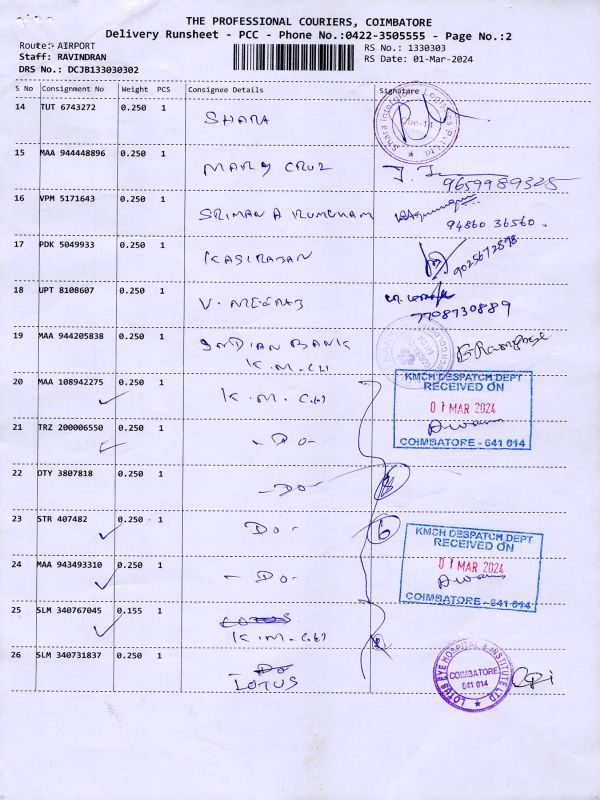 THE PROFESSIONAL COURIERS, COIMBATORE
Delivery Runsheet - PCC - Phone No.:0422-3505555 - Page No.:2
Route: AIRPORT
RS No.: 1330303
Staff: RAVINDRAN
RS Date: 01-Mar-2024
DRS No.: DCJB133030302
S No Consignment No Weight PCS Consignee Details Signature
14 TUT 6743272 0.250 1 SHARA
15 MAA 944448896 0.250 1 MARY CRUZ
9659989325
16 VPM 5171643 0.250 1 SRIMAN ARUMUHAM
94860 36560
17 PDK 5049933 0.250 1 KASIRAJAN
9025672898
18 UPT 8108607 0.250 1 V. MEERAJ
7708730889
19 MAA 944205838 0.250 1 INDIAN BANK
K.M.CH
20 MAA 108942275 0.250 1 K.M.CH
KMCH DESPATCH DEPT
RECEIVED ON
01 MAR 2024
COIMBATORE - 641 014
21 TRZ 200006550 0.250 1 - DO -
22 OTY 3807818 0.250 1 - DO -
23 STR 407482 0.250 1 DO - 6
KMCH DESPATCH DEPT
RECEIVED ON
01 MAR 2024
COIMBATORE - 641 014
24 MAA 943493310 0.250 1 - DO -
25 SLM 340767045 0.155 1 LOTUS
K.M.CH
26 SLM 340731837 0.250 1 DO
LOTUS
LOTUS EYE HOSPITAL & INSTITUTE LTD
COIMBATORE
641 014